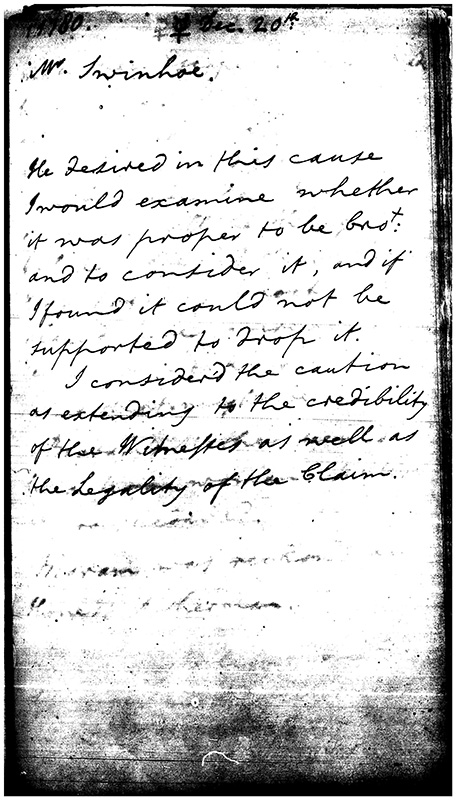 1780. ☿ Dec. 20th
Mr. Swinhoe.
He desired in this cause
I would examine whether
it was proper to be brot:
and to consider it, and if
I found it could not be
supported to drop it.
I consider'd the caution
as extending to the credibility
of the Witnesses as well as
the Legality of the Claim.
was